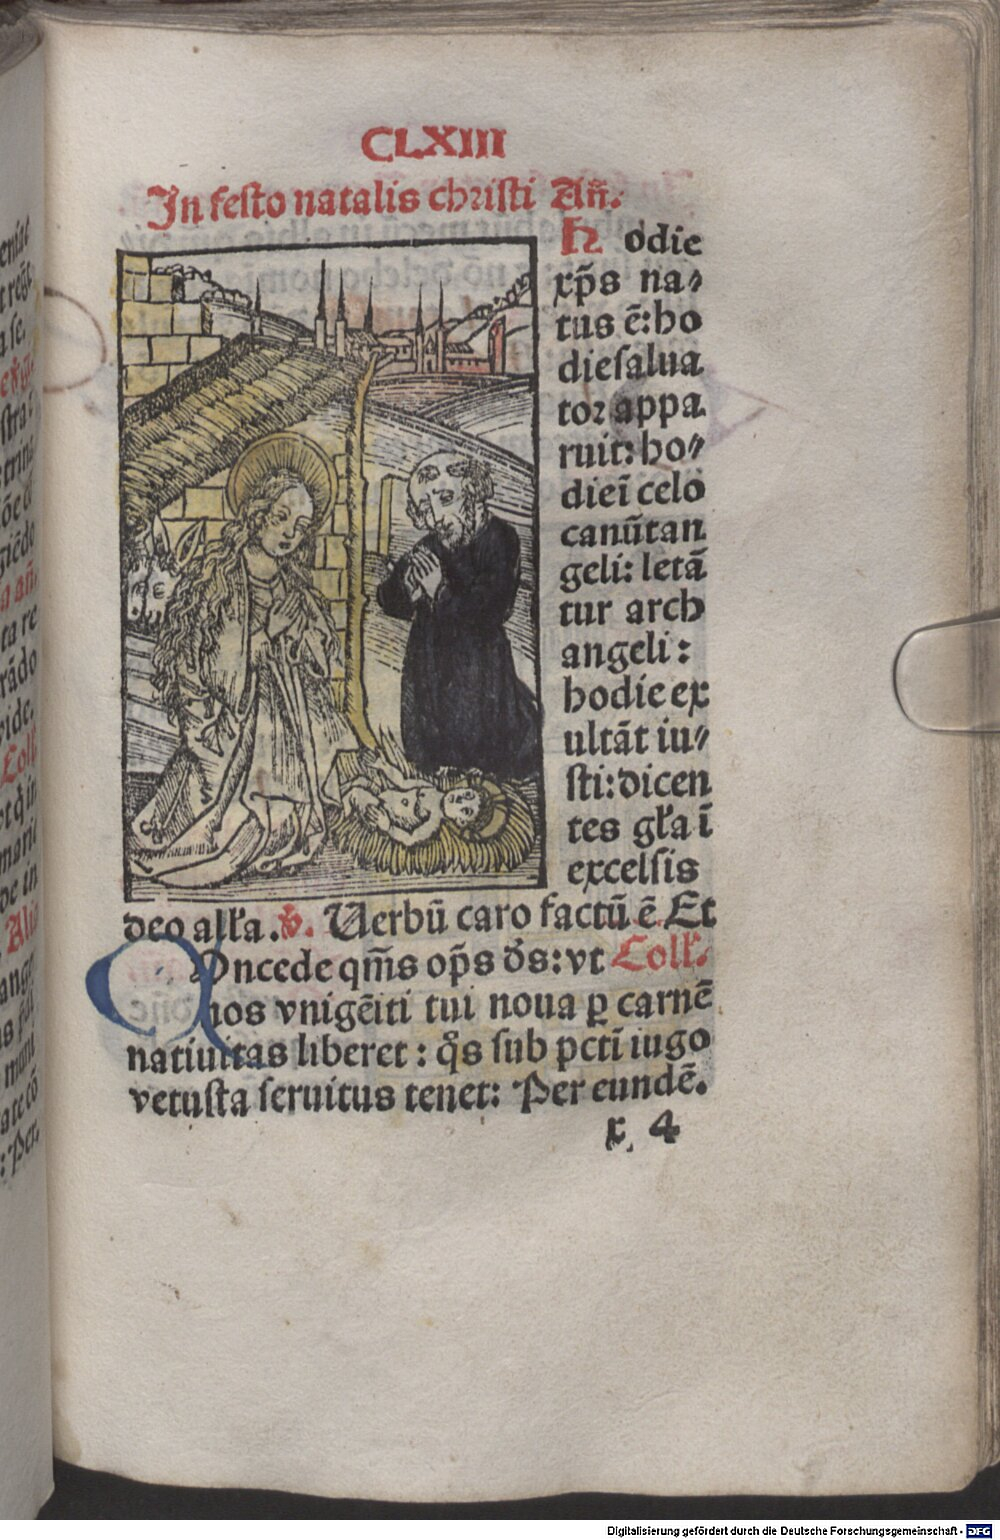 CLXIII
In festo natalis christi Añ.
Hodie
xp̃s na⸗
tus ẽ: ho
die salua
tor appa
ruit: ho⸗
die ĩ celo
canũt an
geli: letã
tur arch
angeli:
hodie ex
ultãt iu⸗
sti: dicen
tes gl'a ĩ
excelsis
deo all'a. ℣. Uerbũ caro factũ ẽ Et
Oncede qm̃s op̃s d's: vt Coll'.
nos vnigẽiti tui noua ꝑ carnẽ
natiuitas liberet: q̃s sub pctĩ iugo
vetusta seruitus tenet: Per eundẽ.
x 4
Digitalisierung gefördert durch die Deutsche Forschungsgemeinschaft - DFG